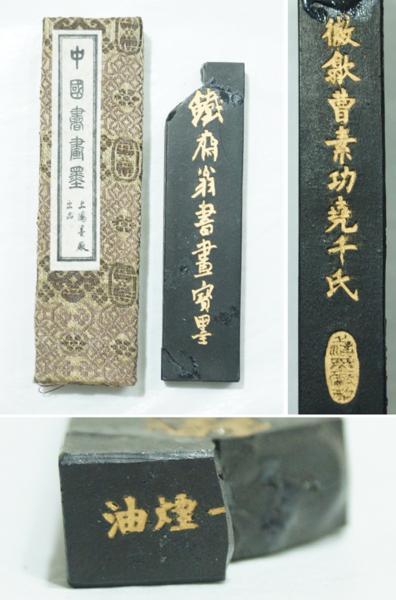 中國書畫墨
上海墨厰
出品
鐵齋翁書畫寳墨
徽歙曹素功堯千氏
油煙一